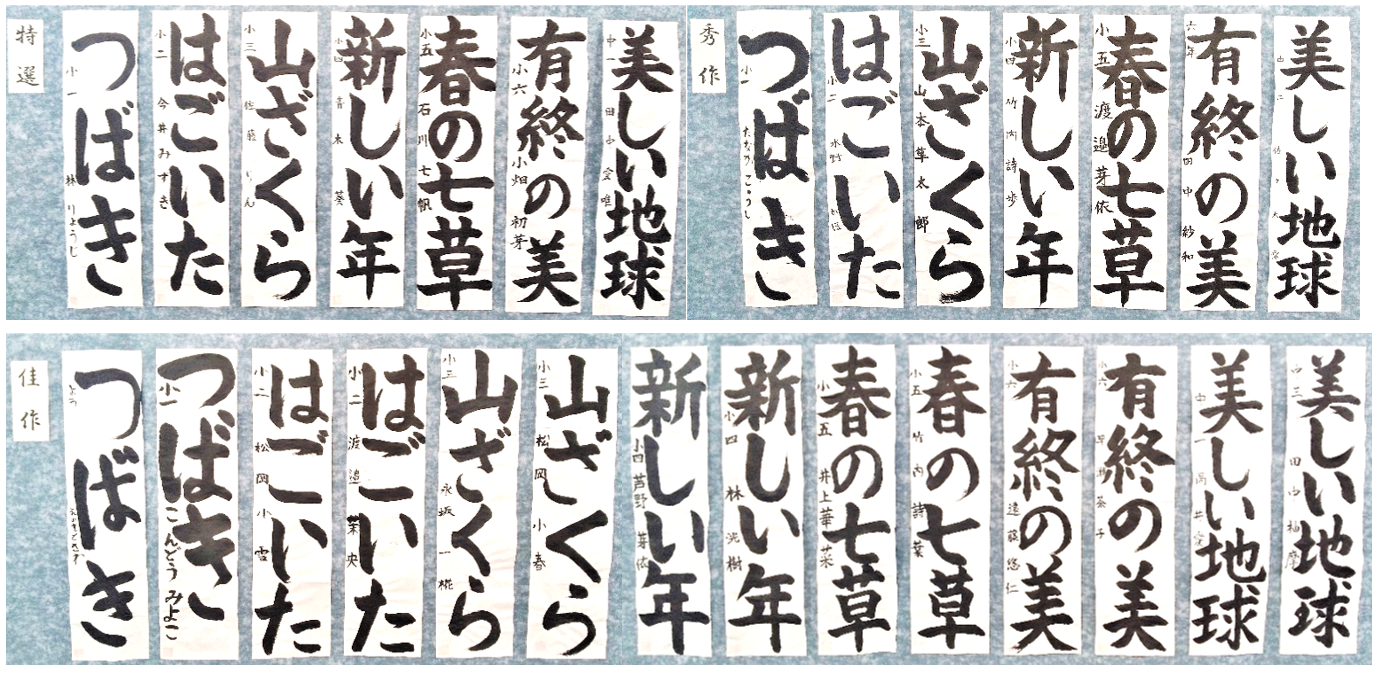 特選
つばき
小一
林 りょうし
はごいた
小二
今井みずき
山ざくら
小三
佐藤
新しい年
小四
青木 葵
春の七草
小五
石川 七帆
有終の美
小六
小畑 初芽
美しい地球
中一
田中 愛唯
秀作
つばき
小一
たなか こうし
はごいた
小二
山ざくら
小三
山本 隼太郎
新しい年
小四
竹内 詩歩
春の七草
小五
渡邉 芽依
有終の美
六年
田中 紗和
美しい地球
中二
佳作
つばき
つばき
小一
こんどう みよこ
はごいた
小二
松岡 小雪
はごいた
小二
渡邉 茉央
山ざくら
小三
永坂 一椛
山ざくら
小三
松岡 小春
新しい年
小四
芦野 芽依
新しい年
小四
林 洸樹
春の七草
小五
井上 華菜
春の七草
小五
竹内 詩葉
有終の美
小六
遠藤 悠仁
有終の美
小六
美しい地球
中一
美しい地球
中三
田中 柚摩